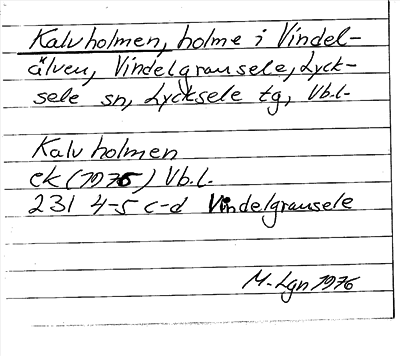 Kalvholmen, holme i Vindel-
älven, Vindelgransele, Lyck-
sele sn, Lycksele tg, Vb.l.
Kalvholmen
ek (1976) Vb.l.
231 4-5 c-d Vindelgransele
M. Lgn 1976